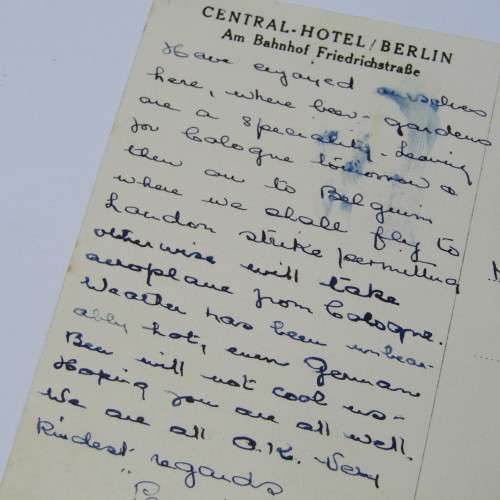 CENTRAL-HOTEL/BERLIN
Am Bahnhof Friedrichstraße
Have enjoyed ourselves
here, where beer-gardens
are a speciality. Leaving
for Cologne tomorrow &
then on to Belgium
where we shall fly to
London strike permitting
otherwise will take
aeroplane from Cologne.
Weather has been unbear-
ably hot, even German
Beer will not cool us-
Hoping you are all well.
We are all O.K. Very
kindest regards